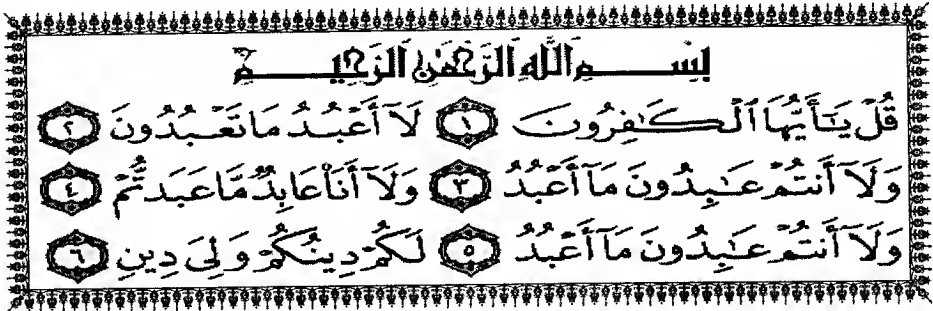 بِسْمِ اللَّهِ الرَّحْمَٰنِ الرَّحِيمِ
قُلْ يَـٰٓأَيُّهَا ٱلْكَـٰفِرُونَ ١ لَآ أَعْبُدُ مَا تَعْبُدُونَ ٢
وَلَآ أَنتُمْ عَـٰبِدُونَ مَآ أَعْبُدُ ٣ وَلَآ أَنَا۠ عَابِدٌ مَّا عَبَدتُّمْ ٤
وَلَآ أَنتُمْ عَـٰبِدُونَ مَآ أَعْبُدُ ٥ لَكُمْ دِينُكُمْ وَلِىَ دِينِ ٦